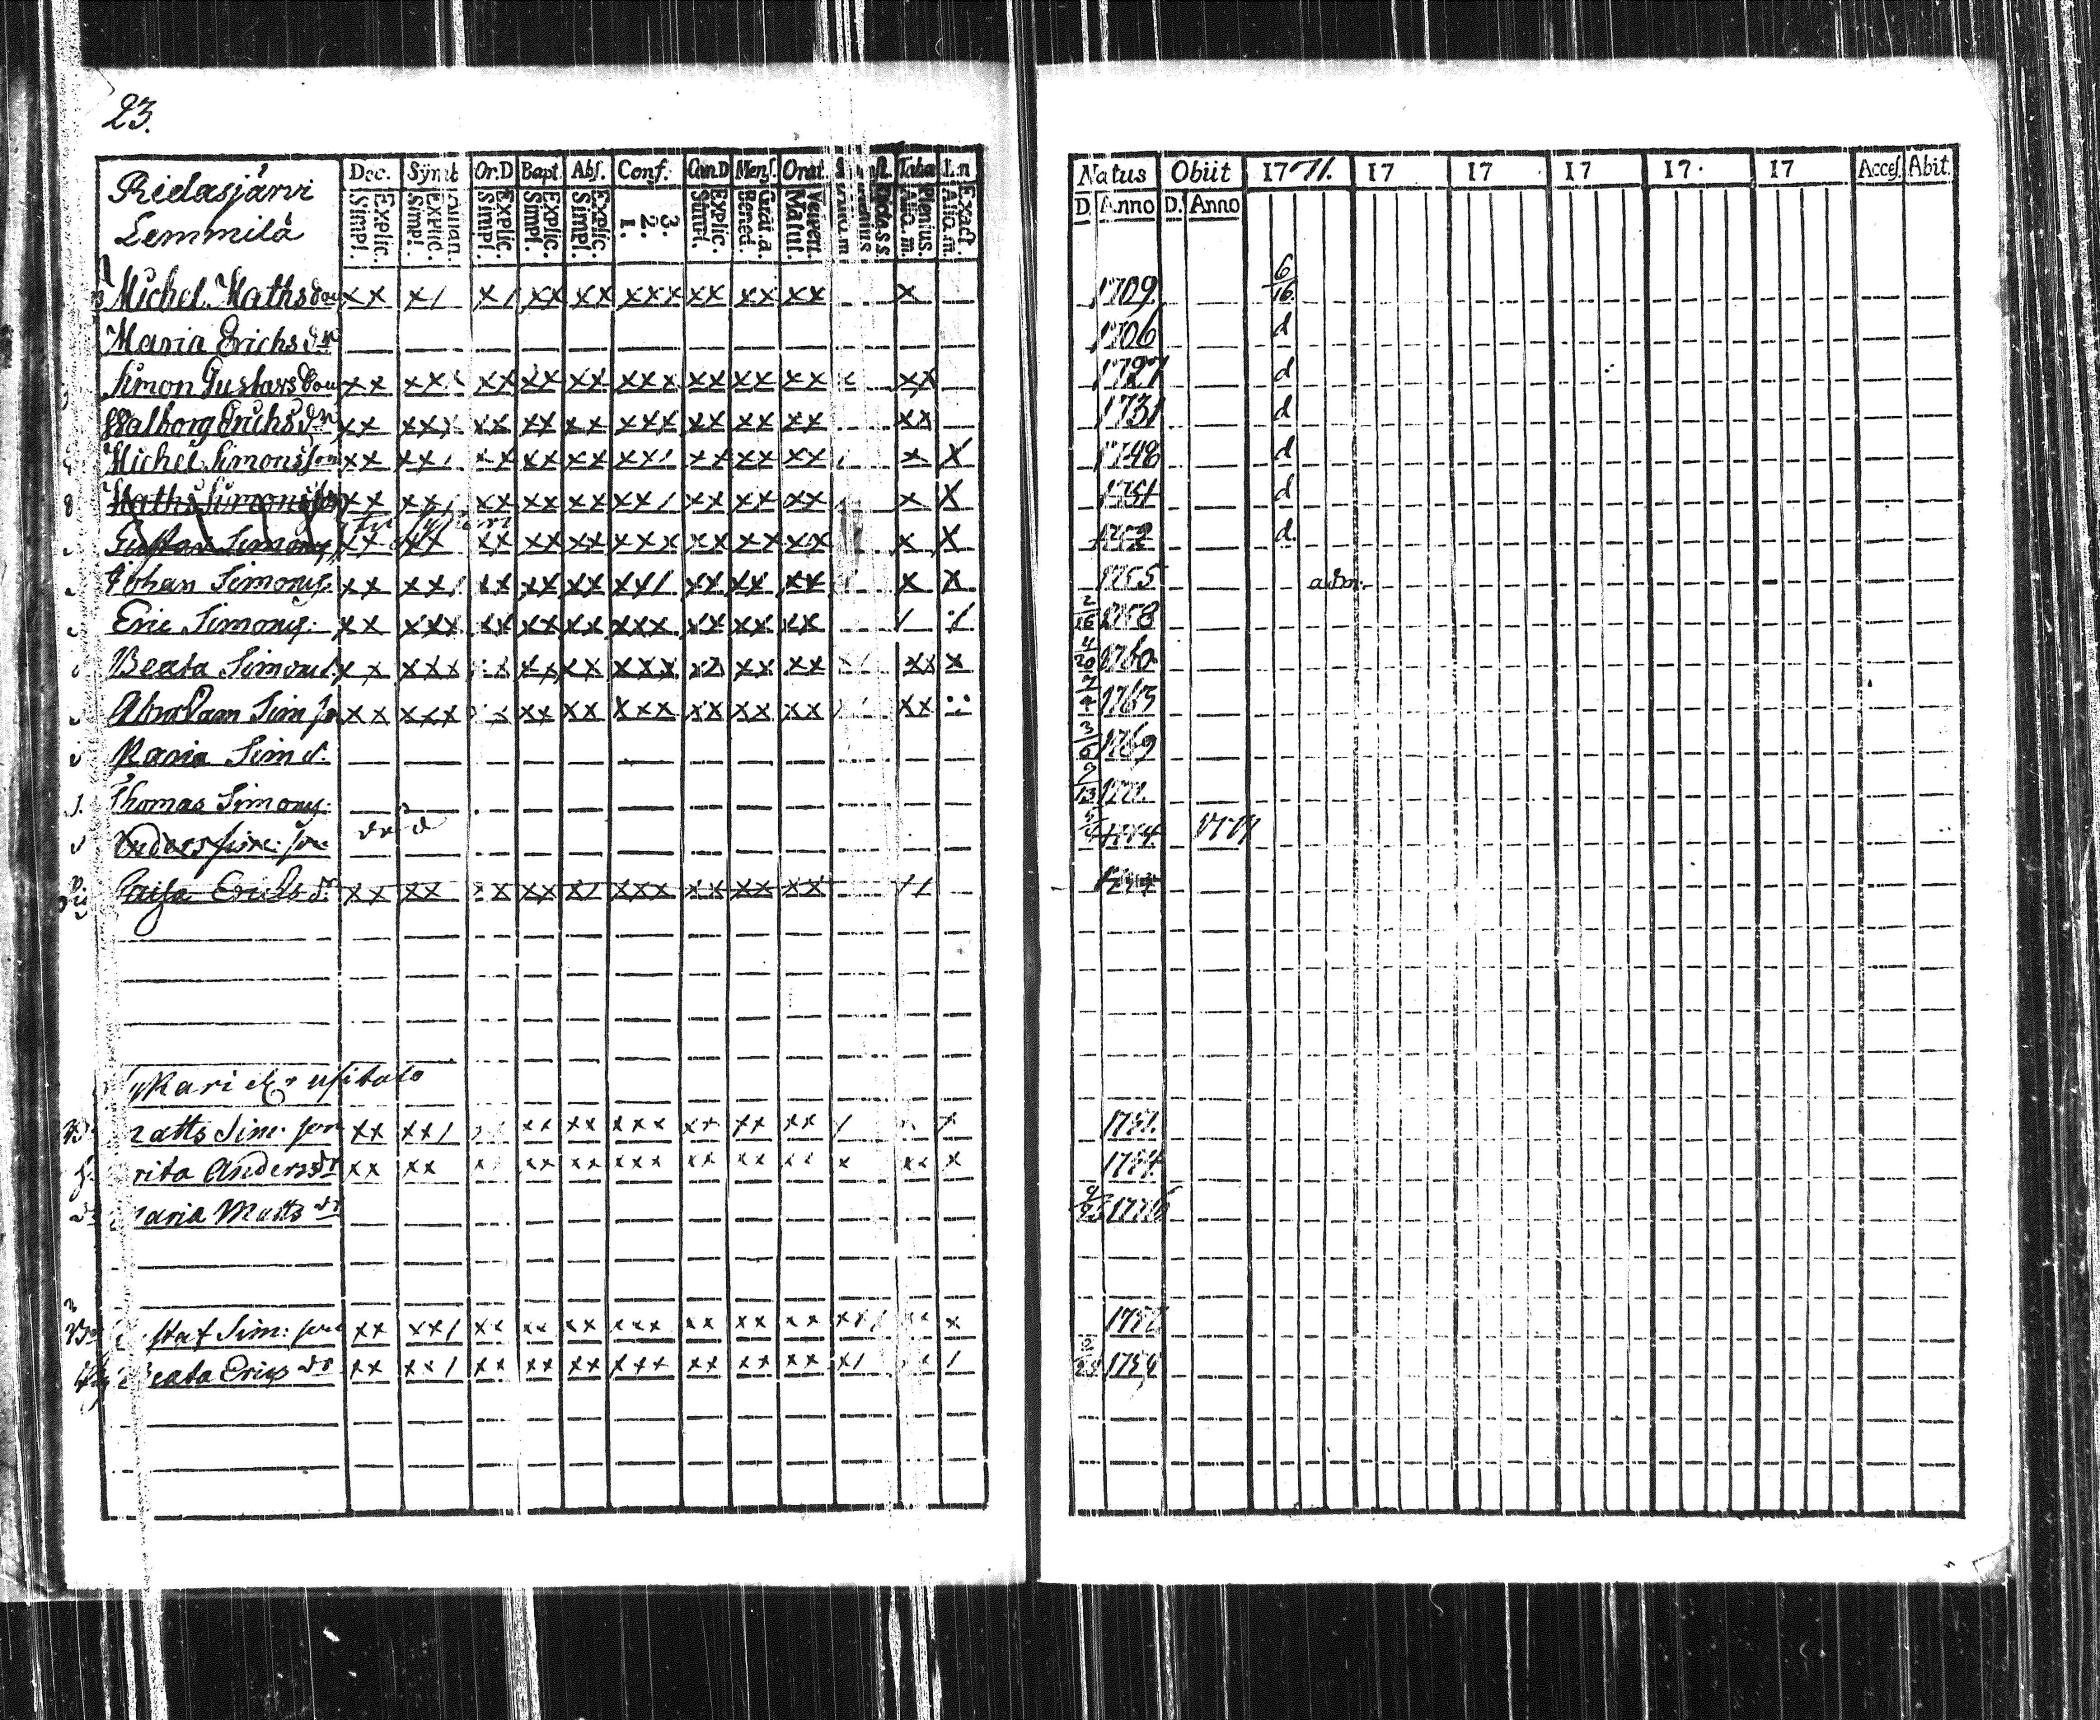 23.
Ridasjärvi
Lemmilä
Dec. Symb Or.D Bapt. Abs. Conf. Can.D Mens. Orat. Taba
Explic. Simpl. Explic. Simpl. Explic. Simpl. Explic. Simpl. Explic. Simpl. 3. 2. 1. Explic. Simpl. Bened. Vespert. Matut. Plenius. Exact.
Natus Obiit 1771. 17 17 17 17. 17 Access. Abit.
D. Anno D. Anno
Michel Mathsson xx x/ x/ xx xx xxx xx xx xx x 1709 6/16
Maria Erichs dr 1706 d
Simon Gustavsson xx xx xx xx xx xxx xx xx xx xx 1727 d
Walborg Erichs dr xx xxx xx xx xx xxx xx xx xx xx 1731 d
Michel Simonsson xx xx/ xx xx xx xx/ xx xx xx / x X 1748 d
Maths Simonsson xx xx/ xx xx xx xx/ xx xx xx x X 1751 d
Gustav Simons xx xx xx xx xx xxx xx xx xx x X 1752 d.
Johan Simons. xx xx/ xx xx xx xx/ xx xx xx x x 1755 adm.
Eric Simons. xx xxx xx xx xx xxx xx xx xx / 2/16 1758
Beata Simons d. xx xxx xx xx xxx xx xx xx xx x 4/20 1760
Abraham Sim so xx xxx xx xx xxx xx xx xx xx 1763
Maria Sim d. 3/6 1769
Thomas Simons. 9/13 1771.
Anders Sim: son död 1774 1777
Caisa Erichs dr xx xx xx xx x/ xxx xx xx xx //
Mari el:r usitalo
Matts Sim: son xx xx/ xx xx xxx xx xx xx / x 1751.
rita Anders dr xx xx xx xx xxx xx xx xx x xx x 1754
Maria Matts dr 1776
staf Sim: son xx xx/ xx xx xx xxx xx xx xx xx x 1752
Beata Erics dr xx xx/ xx xx xx xxx xx xx xx x/ xx / 1754